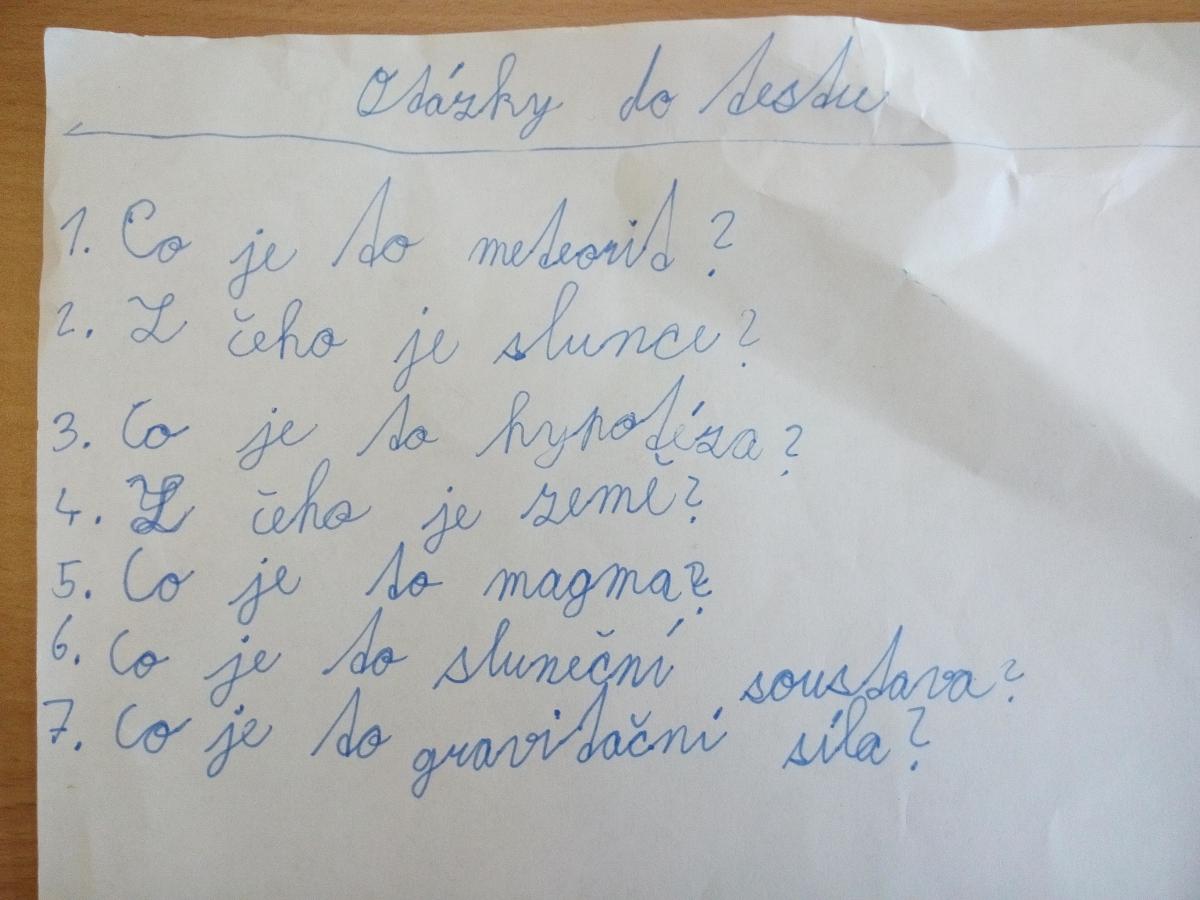 Otázky do testu
1. Co je to meteorit?
2. Z čeho je slunce?
3. Co je to hypotéza?
4. Z čeho je země?
5. Co je to magma?
6. Co je to sluneční soustava?
7. Co je to gravitační síla?